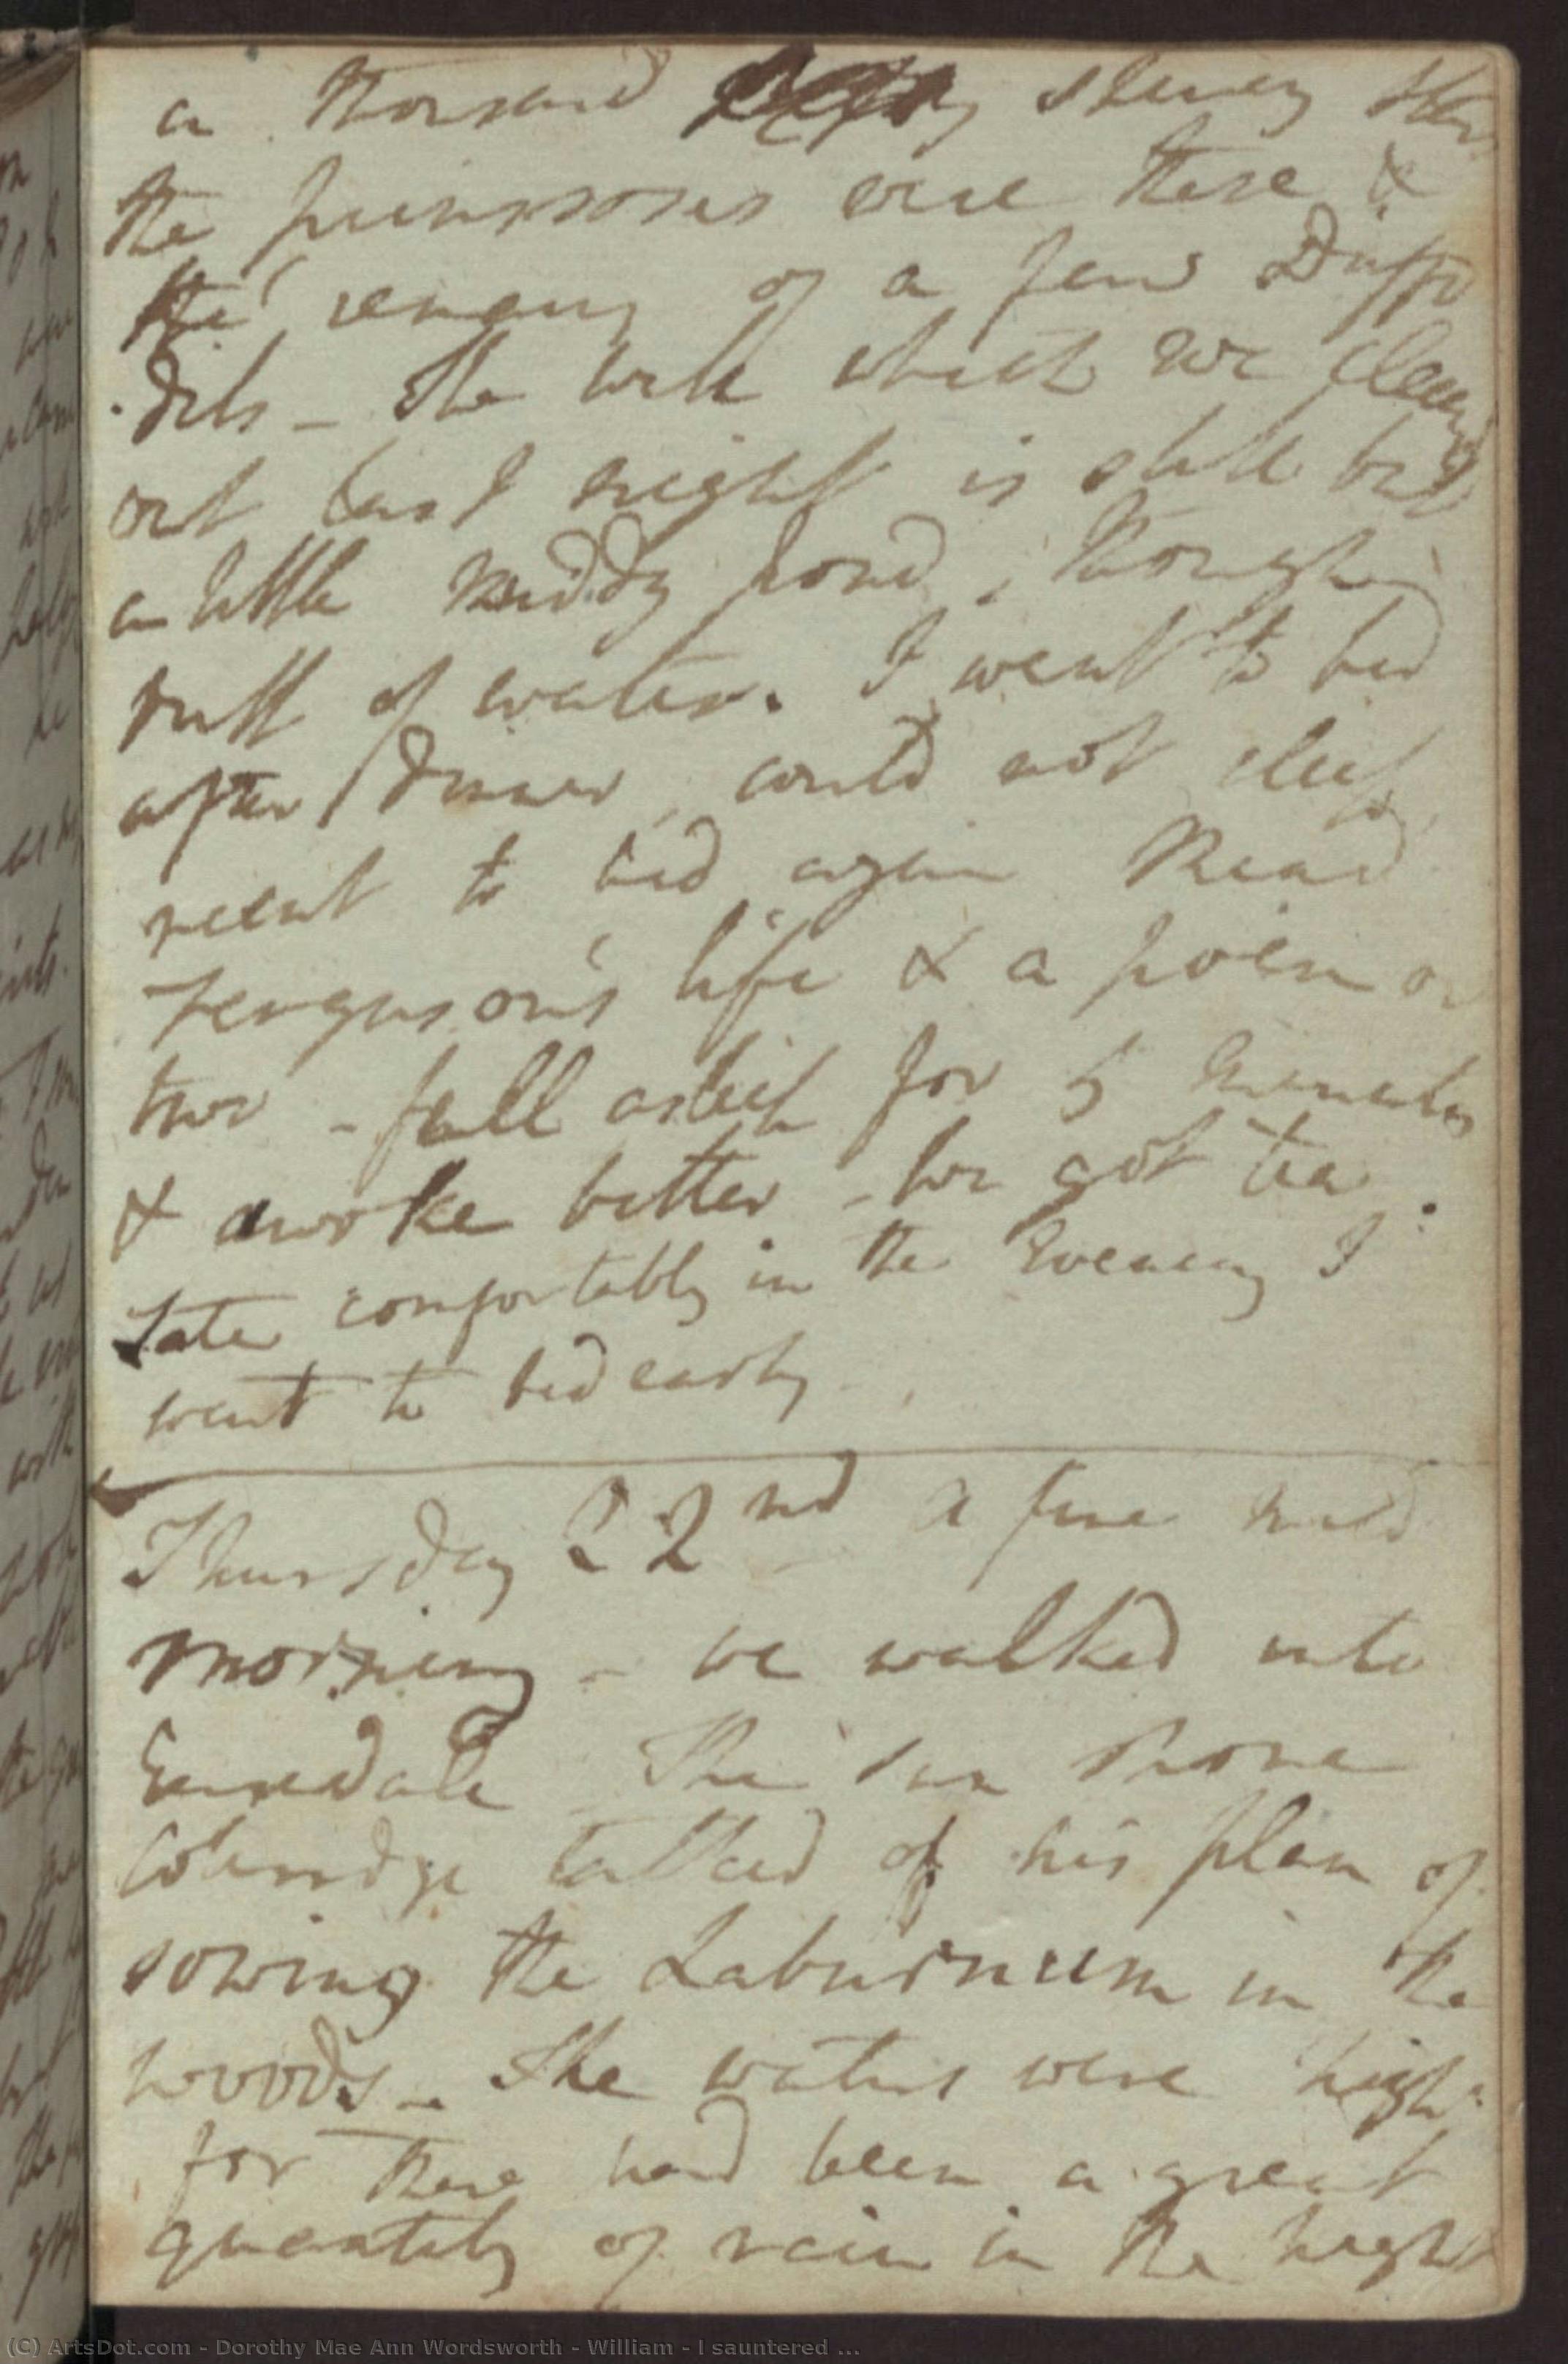 a thousand shining stars
the primroses were there &
the remains of a few Daffo
dils - The well which we cleaned
out last night is still but
a little muddy pond, though
full of water. I went to bed
after dinner, could not sleep,
went to bed again Read
Ferguson's life & a poem or
two - fell asleep for 5 minutes
& awoke better - we got tea.
Sate comfortably in the Evening I
went to bed early
Thursday 22nd a fine mild
morning - we walked into
Easedale The sun shone
Coleridge talked of his plan of
sowing the Laburnum in the
woods - The waters were high
for there had been a great
quantity of rain in the night
(C) ArtsDot.com - Dorothy Mae Ann Wordsworth - William - I sauntered ...